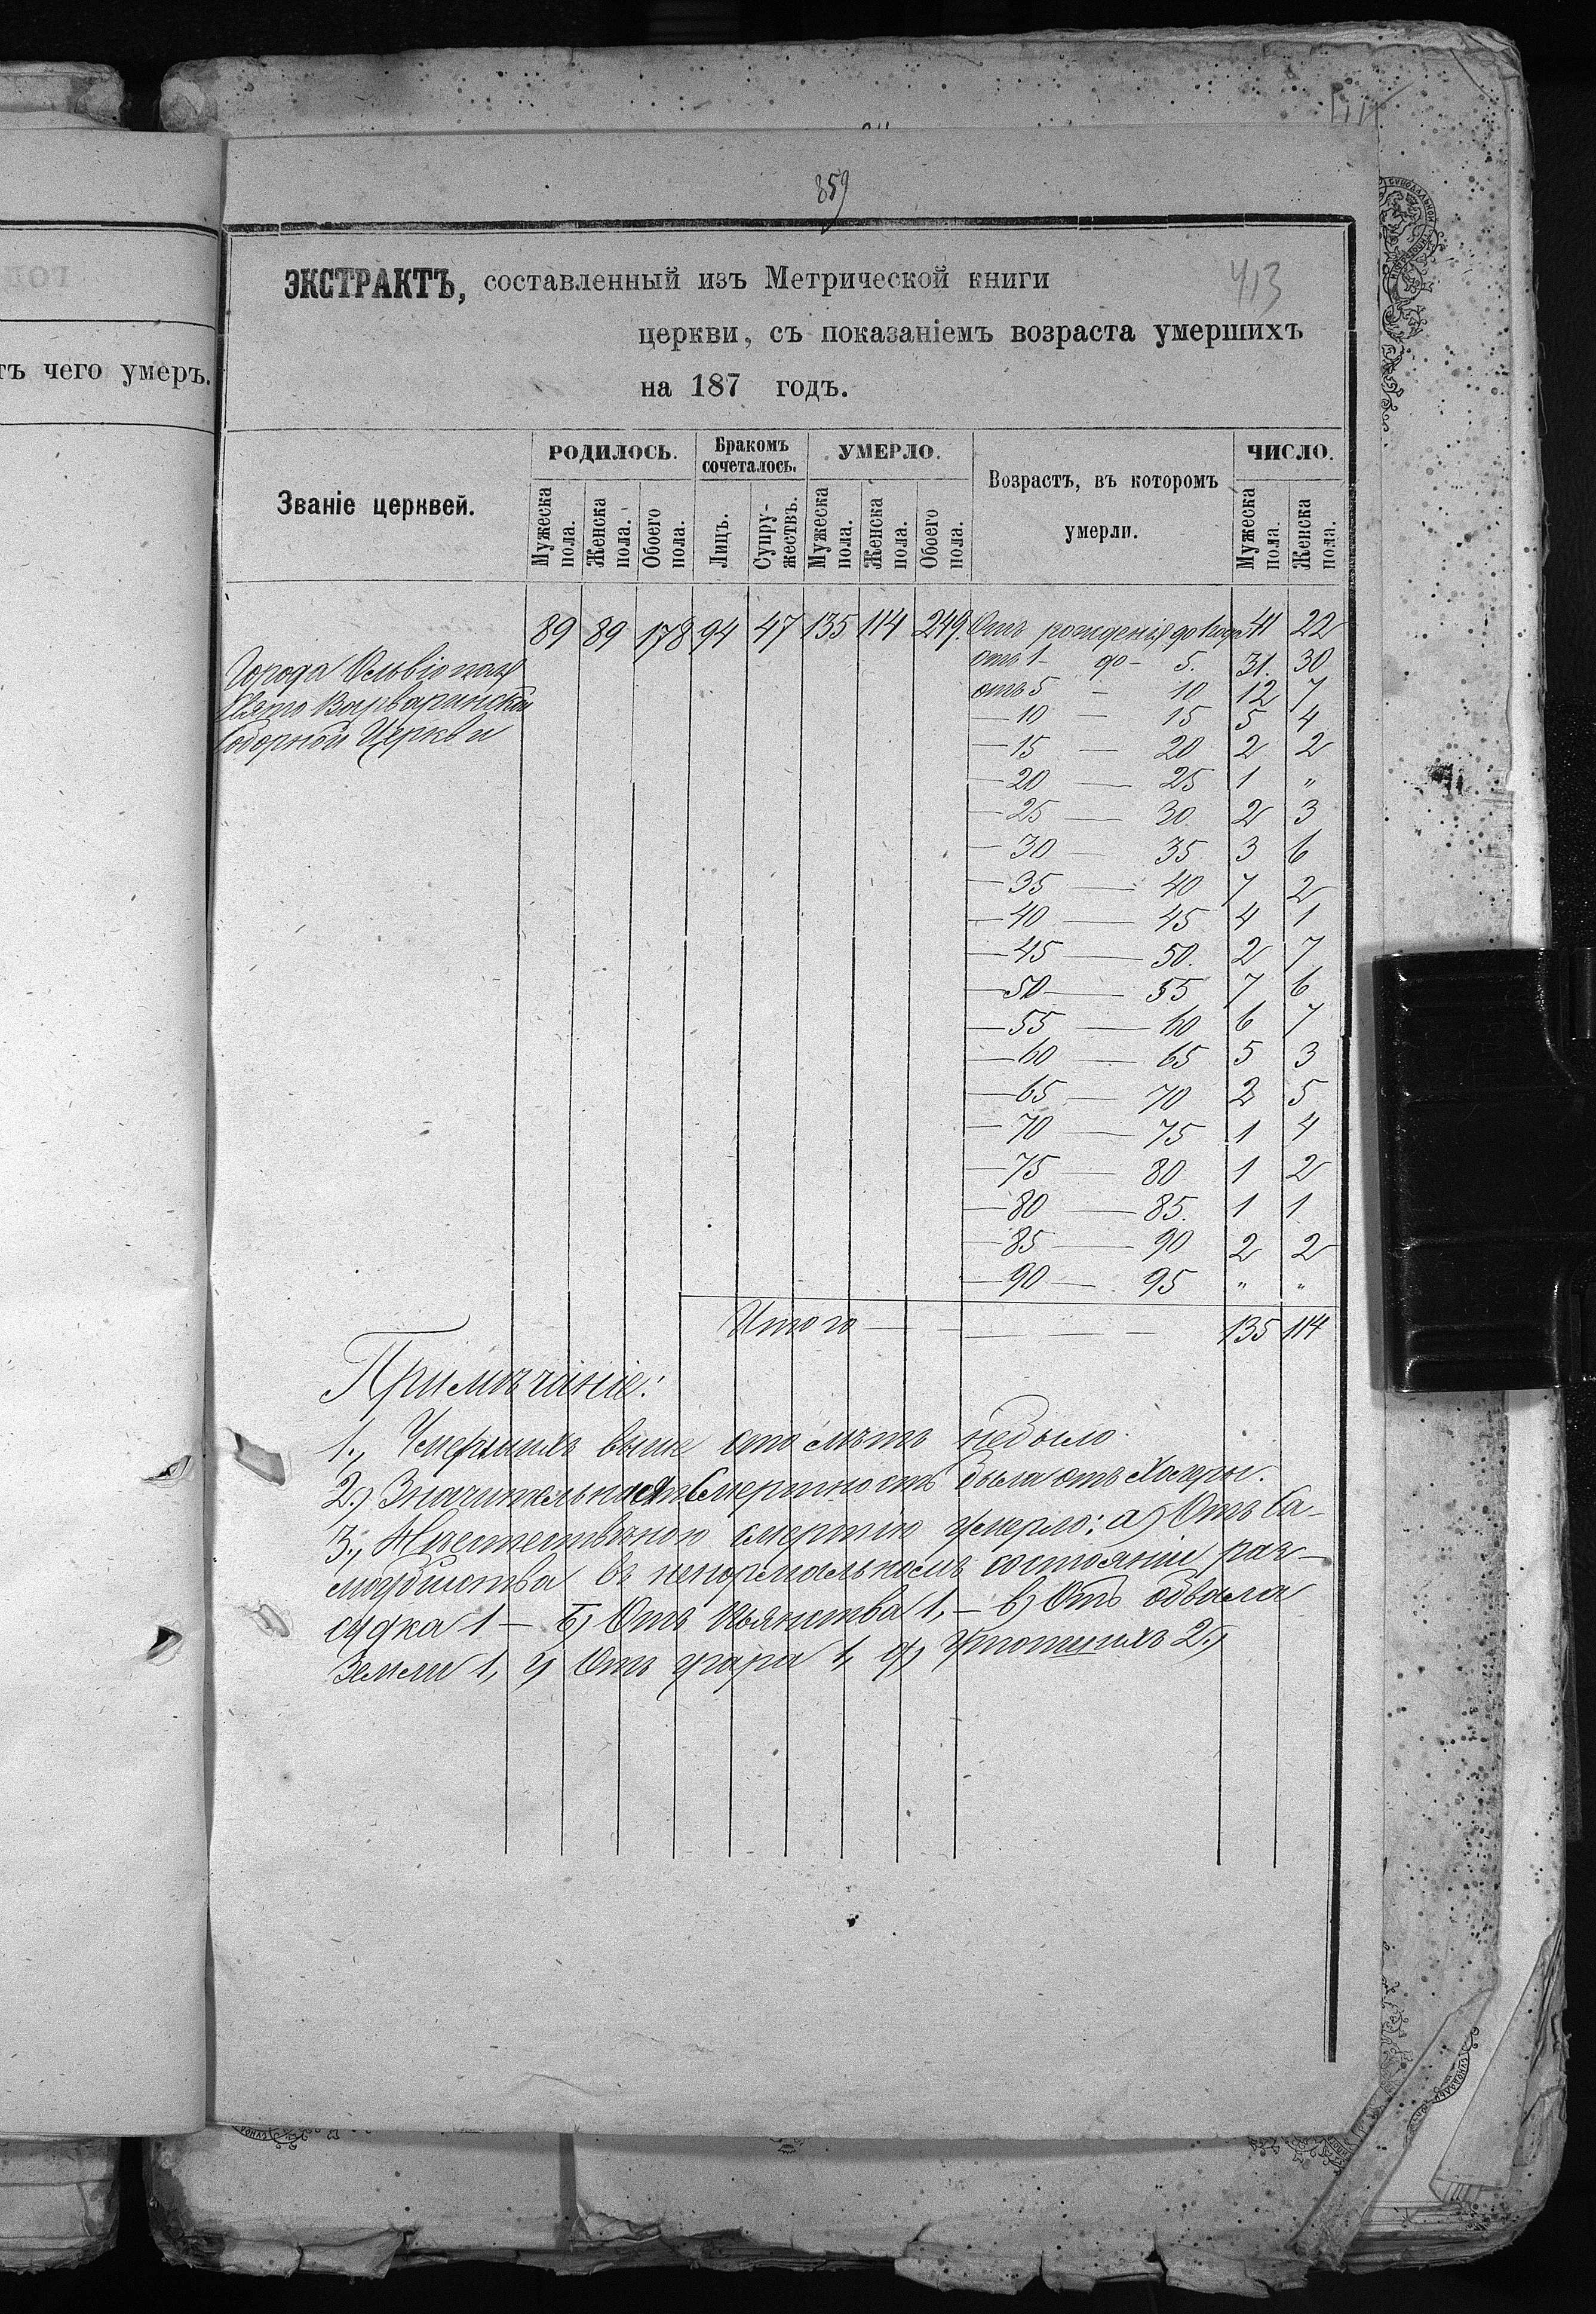 859
413
тъ чего умеръ.
ЭКСТРАКТЪ, составленный изъ Метрической книги
церкви, съ показаніемъ возраста умершихъ
на 187 годъ.
Званіе церквей.
РОДИЛОСЬ.
Мужеска пола.
Женска пола.
Обоего пола.
Бракомъ сочеталось.
Лицъ.
Супружествъ.
УМЕРЛО.
Мужеска пола.
Женска пола.
Обоего пола.
Возрастъ, въ которомъ
умерли.
ЧИСЛО.
Мужеска пола.
Женска пола.
Города Ольвіополя
Свято Варваринской
Соборной Церкви
89 89 178 94 47 135 114 249.
Отъ рожденія до 1 года 41 22
отъ 1 - до - 5. 31. 30
отъ 5 - 10 12 7
— 10 — 15 5 4
— 15 — 20 2 2
— 20 — 25 1 „
— 25 — 30. 2 3
— 30 — 35 3 6
— 35 — 40 7 2
— 40 — 45 4 1
— 45 — 50. 2 7
— 50 — 55 7 6
— 55 — 60 6 7
— 60 — 65 5 3
— 65 — 70 2 5
— 70 — 75 1 4
— 75 — 80 1 2
— 80 — 85. 1 1
— 85 — 90 2 2
— 90 — 95 „ „
Итого — — — — — — 135 114
Примѣчаніе:
1., Умершихъ выше сто лѣтъ небыло.
2.) Значительная Смертность была отъ
3., смертію умерло: а) Отъ Са-
моубійства въ ненормальномъ состояніи раз-
судка 1 — б) Отъ Пьянства 1, — в) Отъ обвала
Земли 1, г) Отъ угара 1, д) Утопшихъ 2.,